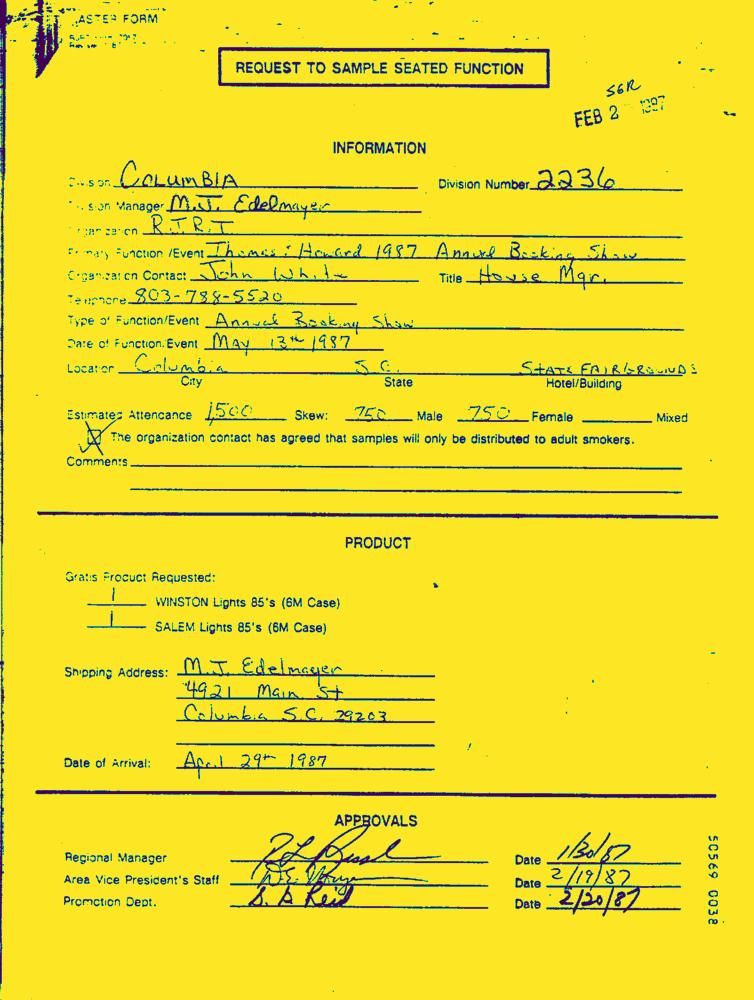 MASTER FORM
REQUEST TO SAMPLE SEATED FUNCTION
SGR
FEB 2 1987
INFORMATION
Division COLUMBIA Division Number 2236
Division Manager M.J. Edelmayer
Organization R.J.R.T.
Primary Function/Event Thomas & Howard 1987 Annual Booking Show
Organization Contact John White Title House Mgr.
Telephone 803-788-5520
Type of Function/Event Annual Booking Show
Date of Function/Event MAY 13th 1987
Location Columbia S.C. STATE FAIRGROUNDS
City State Hotel/Building
Estimated Attendance 1,500 Skew: 750 Male 750 Female Mixed
The organization contact has agreed that samples will only be distributed to adult smokers.
Comments
PRODUCT
Gratis Product Requested:
1 WINSTON Lights 85's (6M Case)
1 SALEM Lights 85's (6M Case)
Shipping Address: M.J. Edelmayer
4921 Main St
Columbia S.C. 29203
Date of Arrival: April 29th 1987
APPROVALS
Regional Manager Date 1/30/87
Area Vice President's Staff Date 2/19/87
Promotion Dept. S. B Reid Date 2/20/87
50569 0038